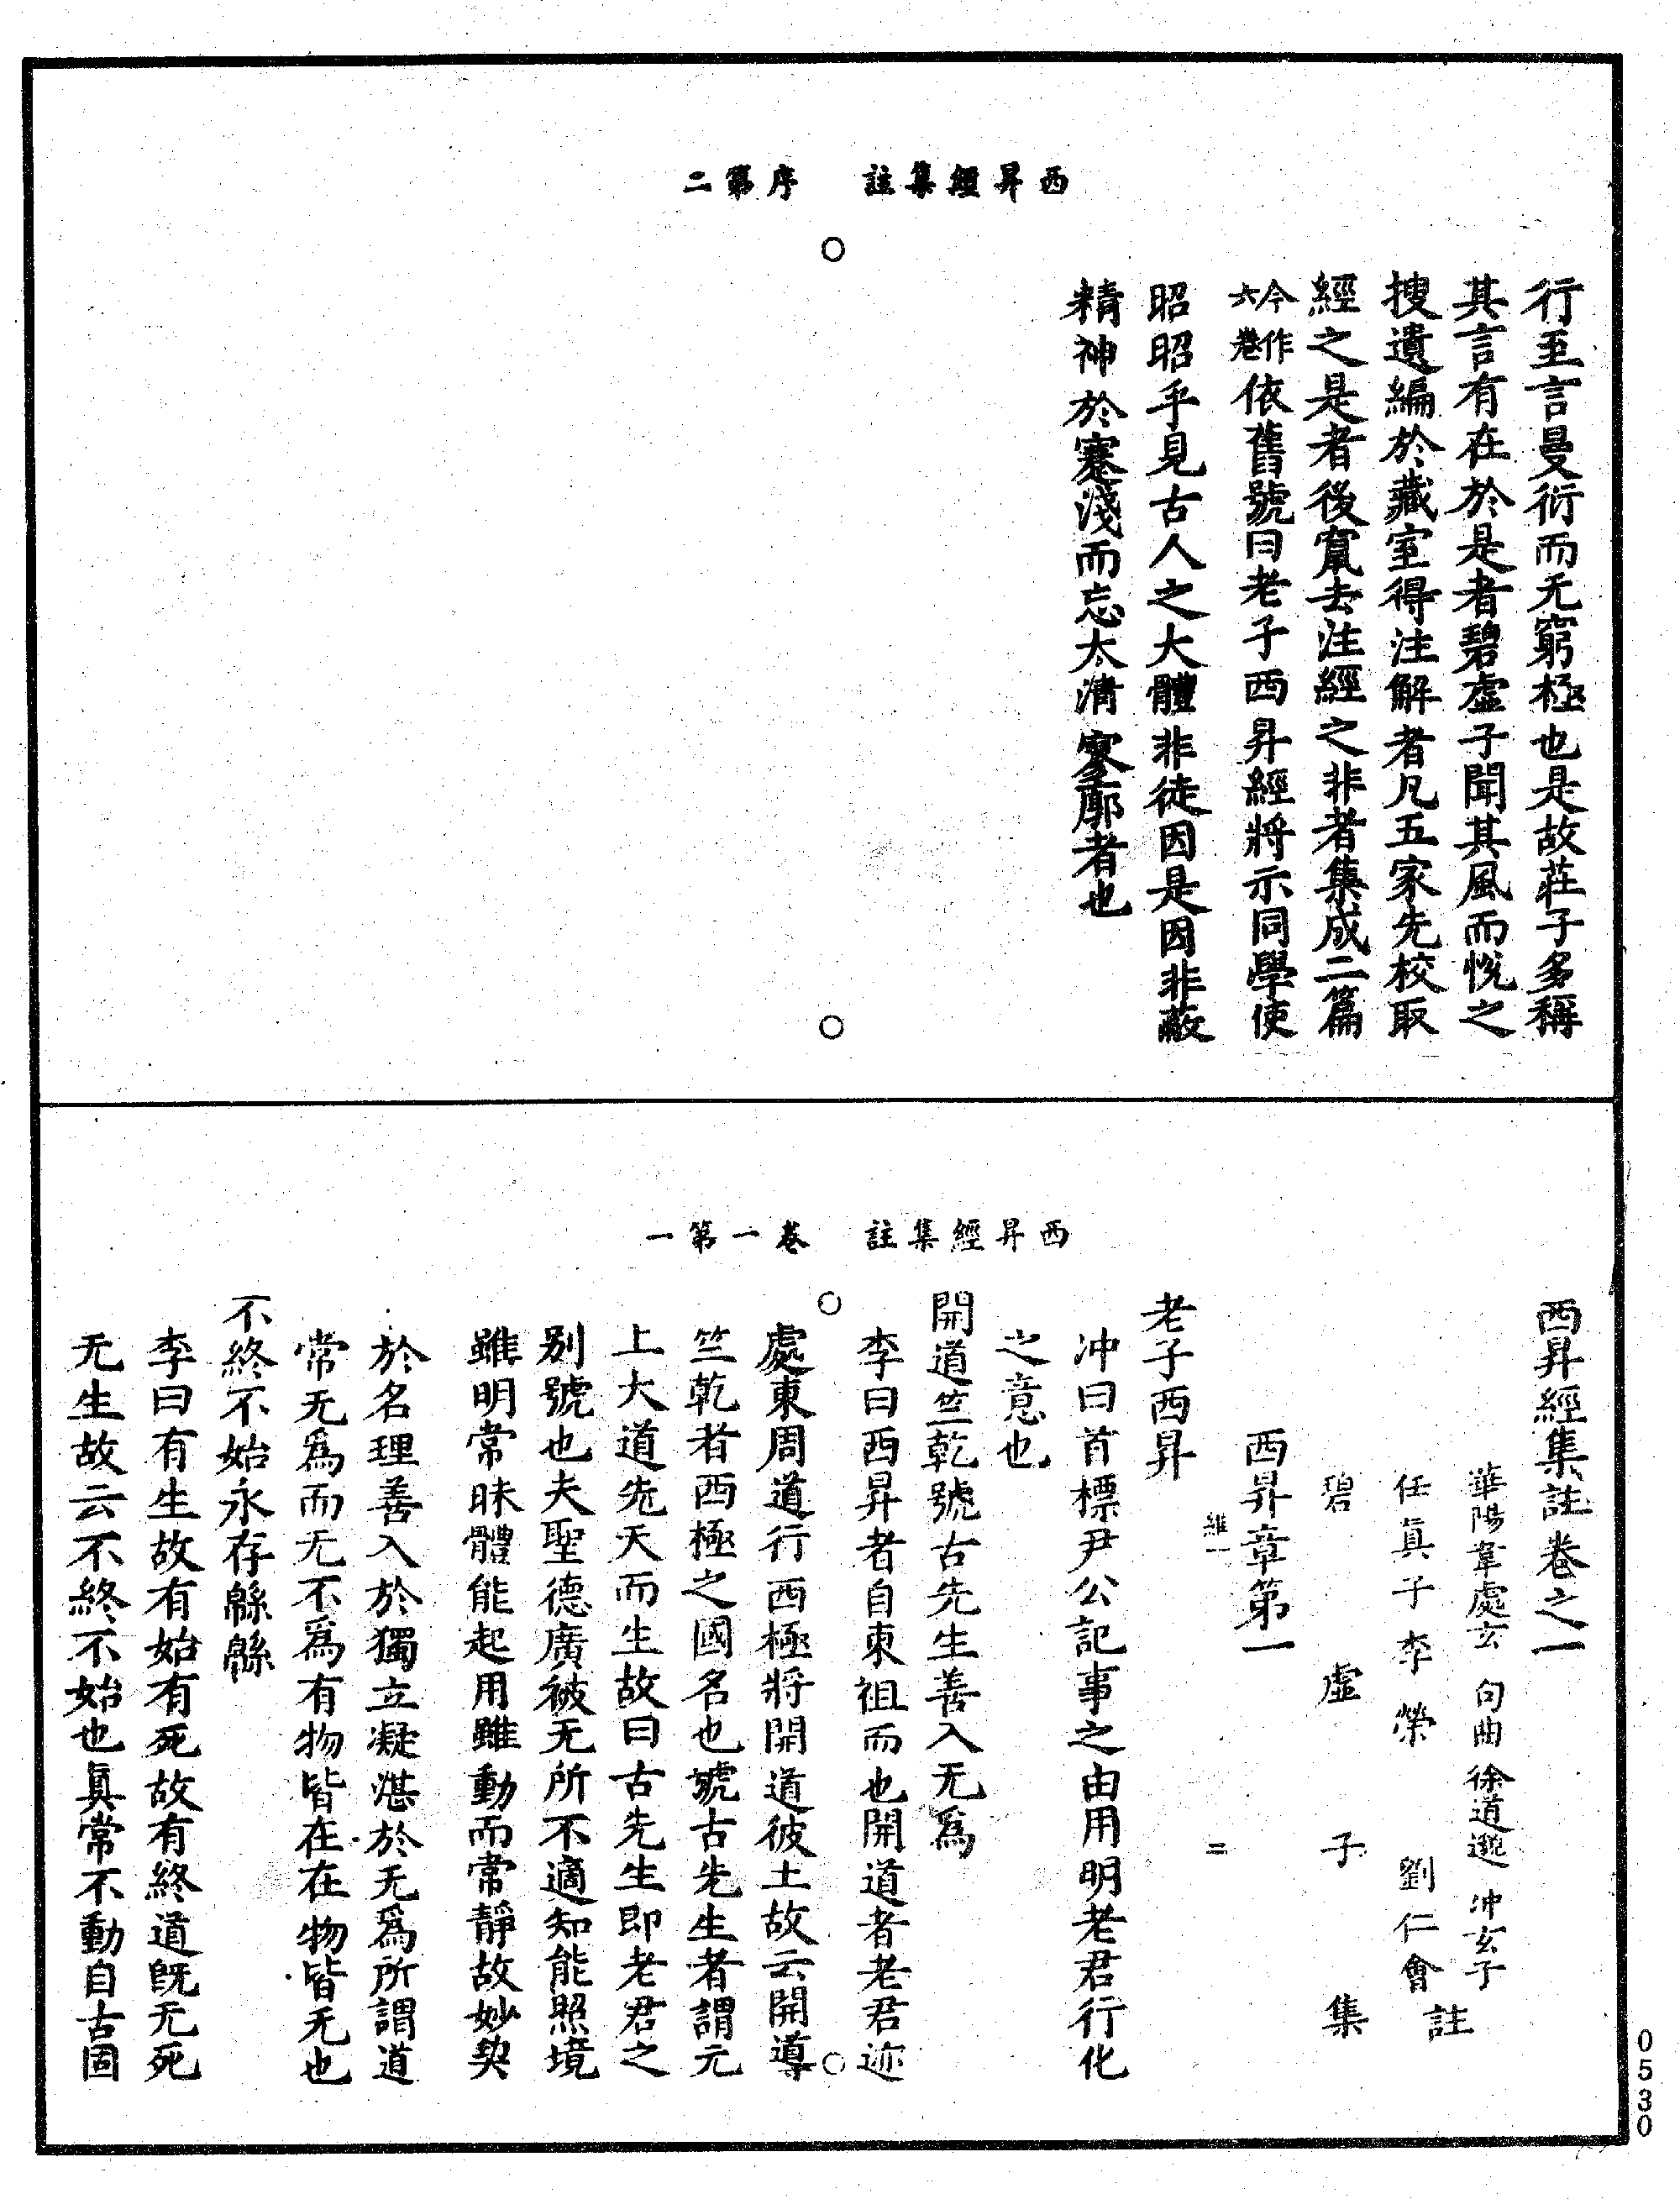 西昇經集註　序第二
行至言曼衍而无窮極也是故莊子多稱
其言有在於是者碧虛子聞其風而悅之
搜遺編於藏室得注解者凡五家先校取
經之是者後竄去注經之非者集成二篇
今作六卷依舊號曰老子西昇經將示同學使
昭昭乎見古人之大體非徒因是因非蔽
精神於蹇淺而忘太清寥廓者也
西昇經集註　卷一第一
西昇經集註卷之一
華陽韋處玄　句曲徐道邈　冲玄子
任真子李榮　劉仁會　註
碧虛子　集
西昇章第一
維一　二
老子西昇
冲曰首標尹公記事之由用明老君行化
之意也
開道竺乾號古先生善入无爲
李曰西昇者自東徂而也開道者老君迹
處東周道行西極將開道彼土故云開導
竺乾者西極之國名也號古先生者謂元
上大道先天而生故曰古先生即老君之
別號也夫聖德廣被无所不適知能照境
雖明常昧體能起用雖動而常靜故妙契
於名理善入於獨立凝湛於无爲所謂道
常无爲而无不爲有物皆在在物皆无也
不終不始永存緜緜
李曰有生故有始有死故有終道旣无死
无生故云不終不始也眞常不動自古固
0530